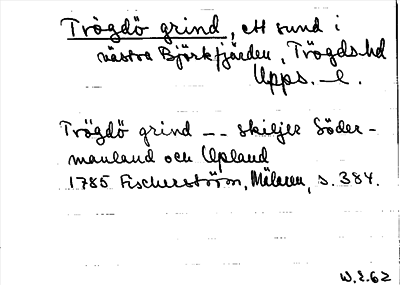 Trögdö grind, ett sund i
västra Björkfjärden, Trögds hd
Upps. l.
Trögdö grind -- skiljer Söder-
manland och Upland
1785 Fischerström, Mälaren, s. 384.
W.E.62